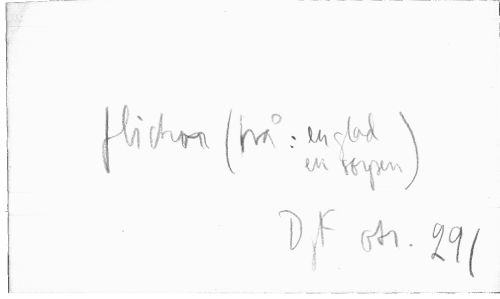 flickor (två: en glad
en sorgsen)
DfF otr. 291